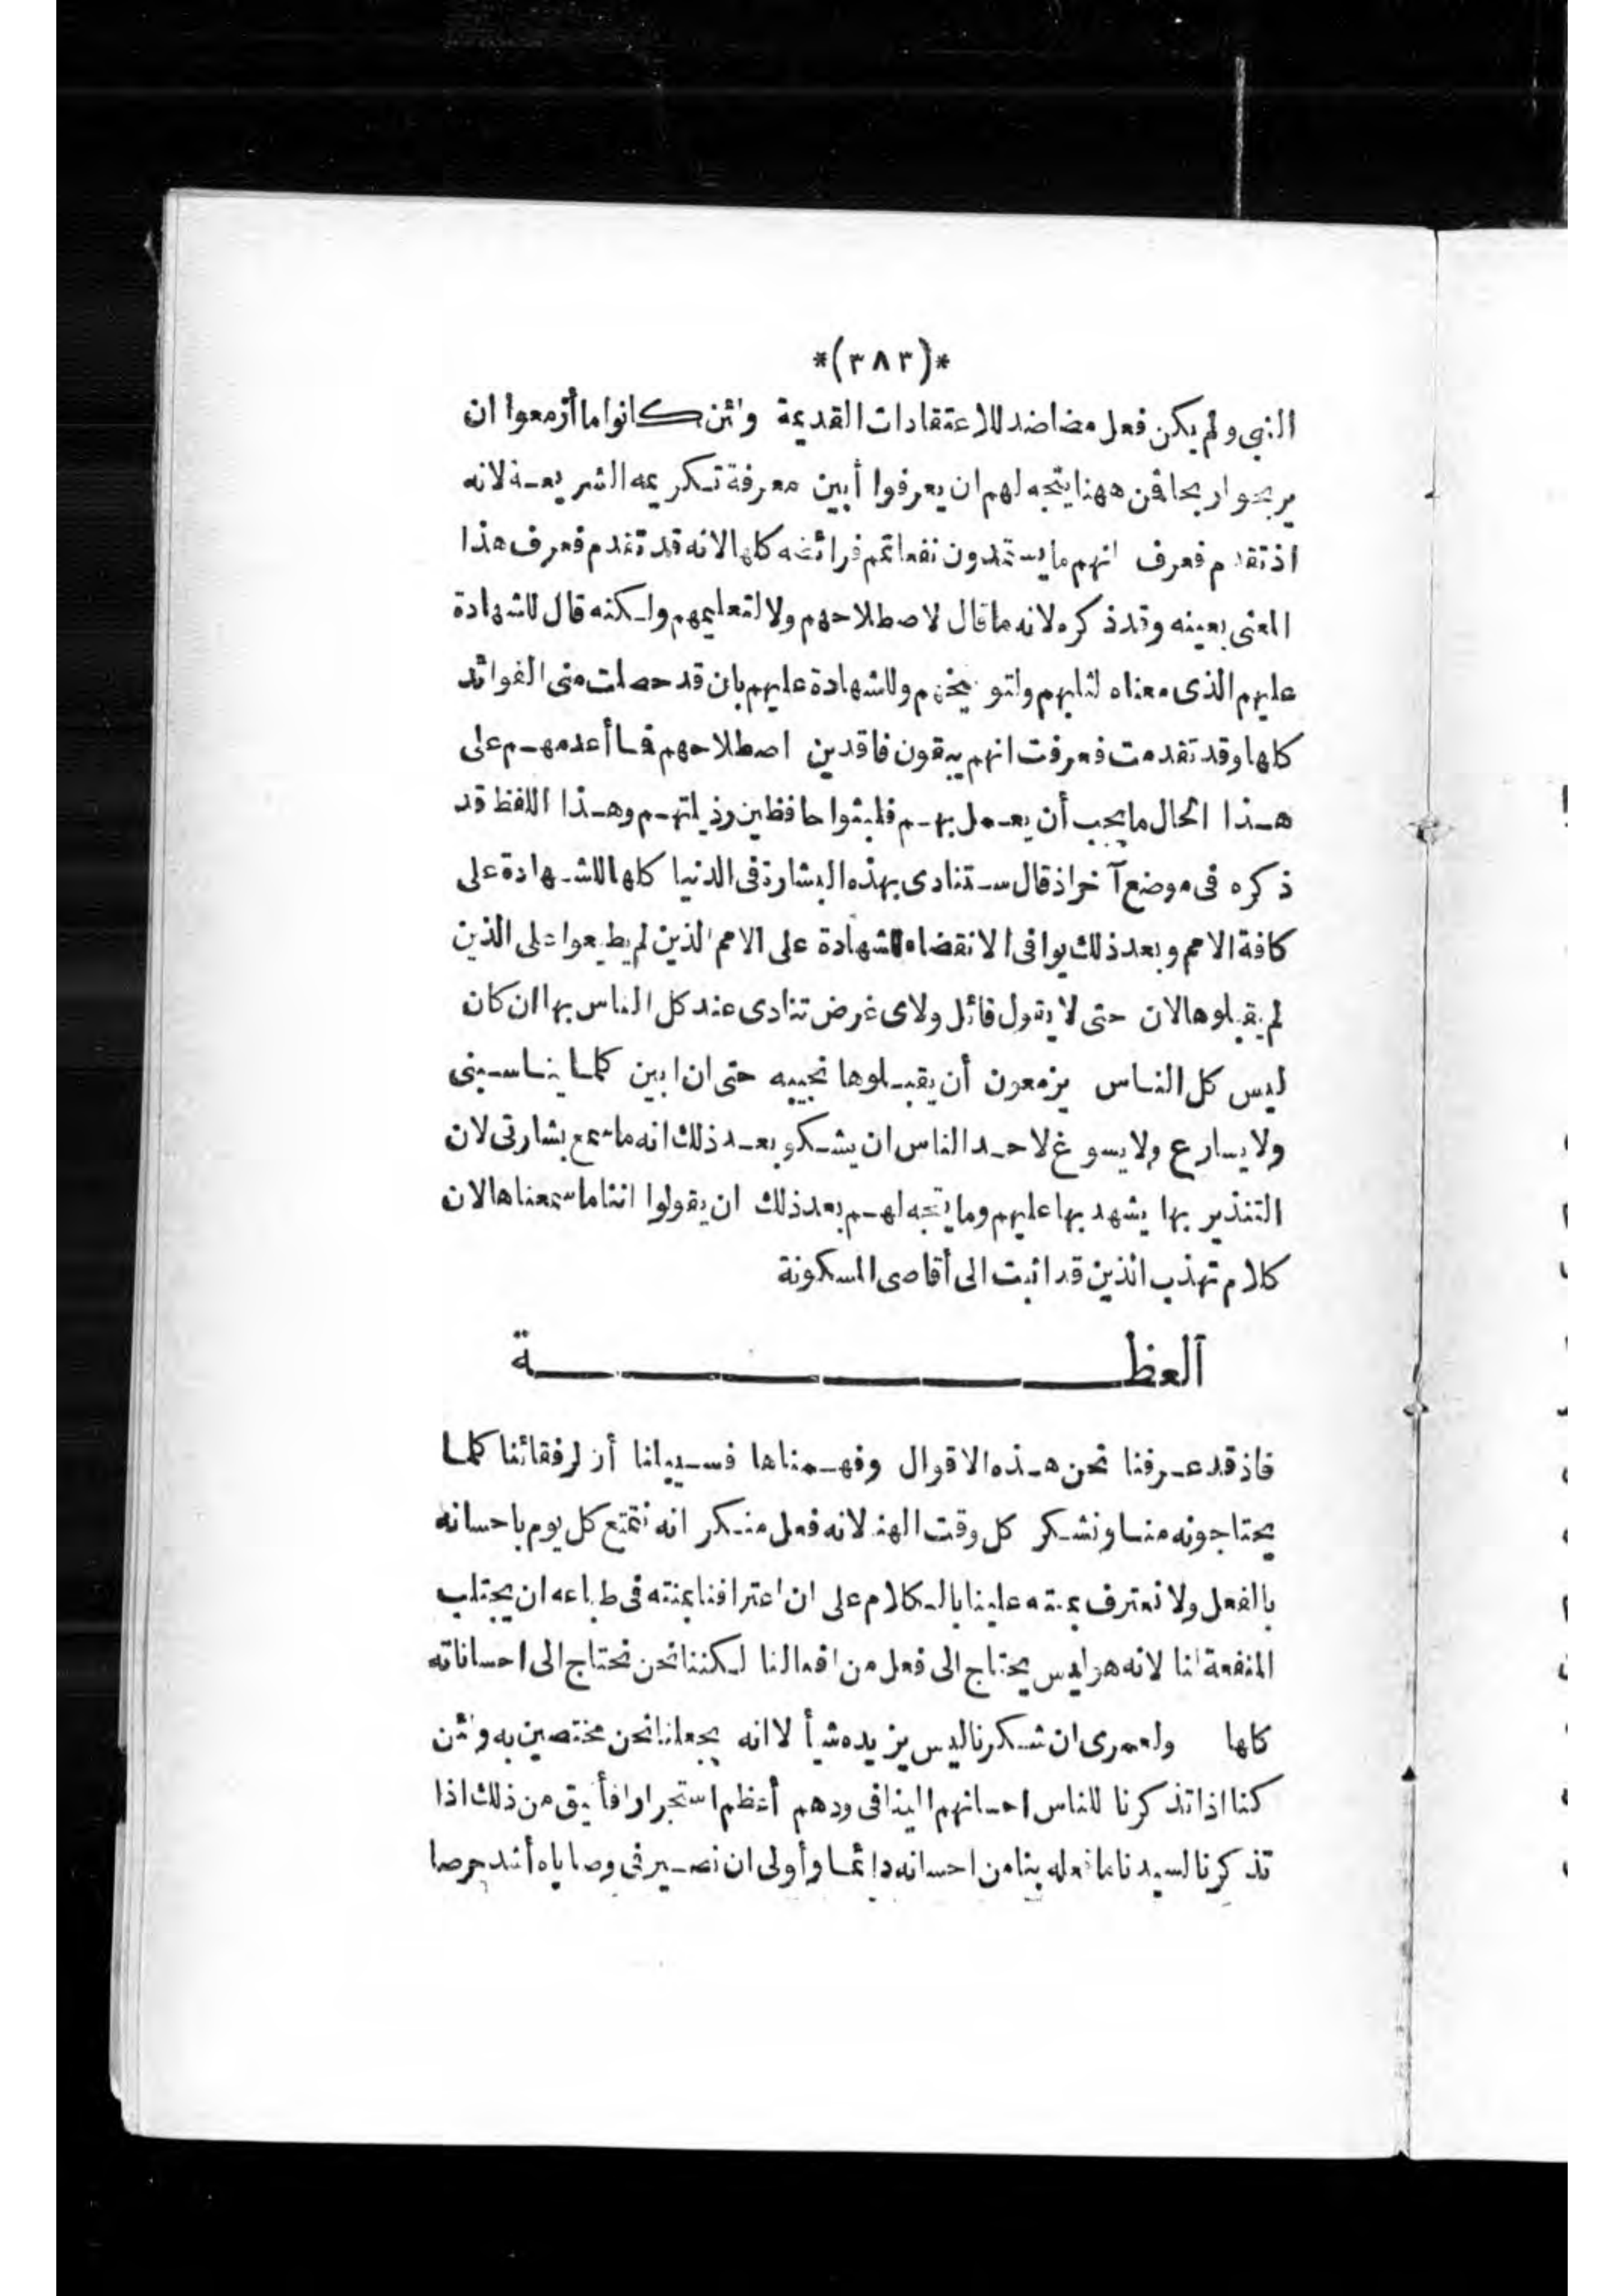 *(٣٨٣)*
النبي ولم يكن فعل مضاضد للاعتقادات القديمة ولئن كانوا ما أزمعوا ان
يربحوا ربحا فمن ههنا يتجه لهم ان يعرفوا أبين معرفة تكريمه الشريعة لانه
اذ تقدم فعرف انهم ما يستمدون نفعا تمم فرائضه كلها لانه قد تقدم فعرف هذا
المعنى بعينه وقد ذكره لانه ما قال لاصطلاحهم ولا لتعليمهم ولكنه قال للشهادة
عليهم الذى معناه لثلبهم ولتوبيخهم وللشهادة عليهم بان قد حصلت منى الفوائد
كلها وقد تقدمت فعرفت انهم يبقون فاقدين اصطلاحهم فما أعدمهم على
هذا الحال ما يجب أن يعمل بهم فلبثوا حافظين رذيلتهم وهذا اللفظ قد
ذكره فى موضع آخر اذ قال ستنادى بهذه البشارة فى الدنيا كلها للشهادة على
كافة الامم وبعد ذلك يوافى الانقضاء للشهادة على الامم الذين لم يطيعوا على الذين
لم يقبلوها لان حتى لا يقول قائل ولاى غرض تنادى عند كل الناس بها ان كان
ليس كل الناس يزمعون أن يقبلوها نجيبه حتى ان ابين كلما يناسبنى
ولا يسارع ولا يسوغ لاحد الناس ان يشكو بعد ذلك انه ما سمع بشارتى لان
التنذير بها يشهد بها عليهم وما يتجه لهم بعد ذلك ان يقولوا اننا ما سمعناها لان
كلام تهذب الذين قد انبت الى أقاصى المسكونة
العظـــــــــة
فاذ قد عرفنا نحن هذه الاقوال وفهمناها فسبيلنا أن لرفقائنا كلما
يحتاجونه منا ونشكر كل وقت الهنا لانه فعل منكر انه نتمتع كل يوم باحسانه
بالفعل ولا نعترف بمنته علينا بالكلام على ان اعترافنا بمنته فى طباعه ان يجتلب
المنفعة لنا لانه هو ليس يحتاج الى فعل من افعالنا لكننا نحن نحتاج الى احساناته
كلها ولعمرى ان شكرنا ليس يزيده شيأ لا انه يجعلنا نحن مختصين به ولئن
كنا اذا تذكرنا للناس احسانهم الينا فى ودهم أعظم استجرارا فأليق من ذلك اذا
تذكرنا لسيدنا ما فعله بنا من احسانه دائما وأولى ان نصير فى وصاياه أشد حرصا